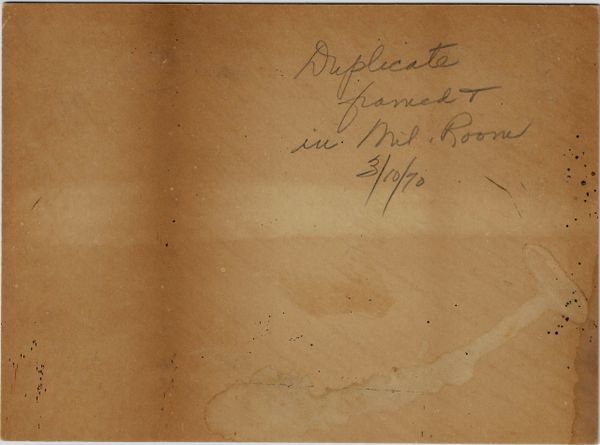 Duplicate
framed +
in Mil. Room
3/10/70